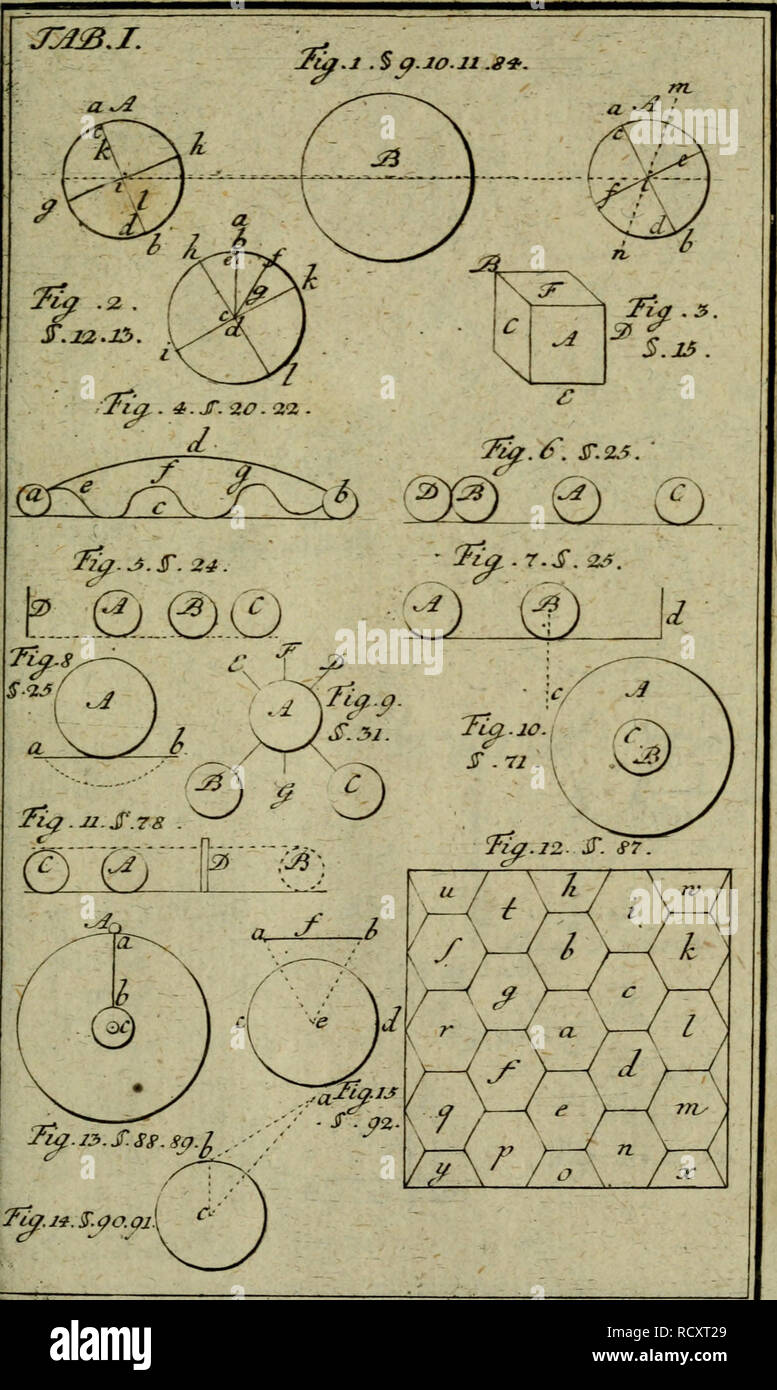 TAB. I.
Fig. 1. § 9. 10. 11. 84.
a A
c
k
h
i
g
l
d
b
B
m
a A
c
e
i
f
d
n
b
a
b
h
e
f
k
g
c
d
i
l
Fig. 2.
§. 12. 13.
B
F
C
A
D
E
Fig. 3.
§. 15.
Fig. 4. §. 20. 22.
d
a e f g b
c
Fig. 6. §. 25.
D B A C
Fig. 5. §. 24.
D A B C
Fig. 7. §. 25.
A B d
c
Fig. 8
§. 25
A
a b
E F D
A
B G C
Fig. 9.
§. 31.
Fig. 10.
§. 71
A
C
B
Fig. 11. §. 78.
C A D B
Fig. 12. §. 87.
u t h i w
s g b c k
r f a d l
q p e n m
y o x
A
a
b
c
a f b
c e d
Fig. 13. §. 88. 89.
a Fig. 15
§. 92.
b
c
Fig. 14. §. 90. 91.
alamy
Image ID: RCXT29
www.alamy.com